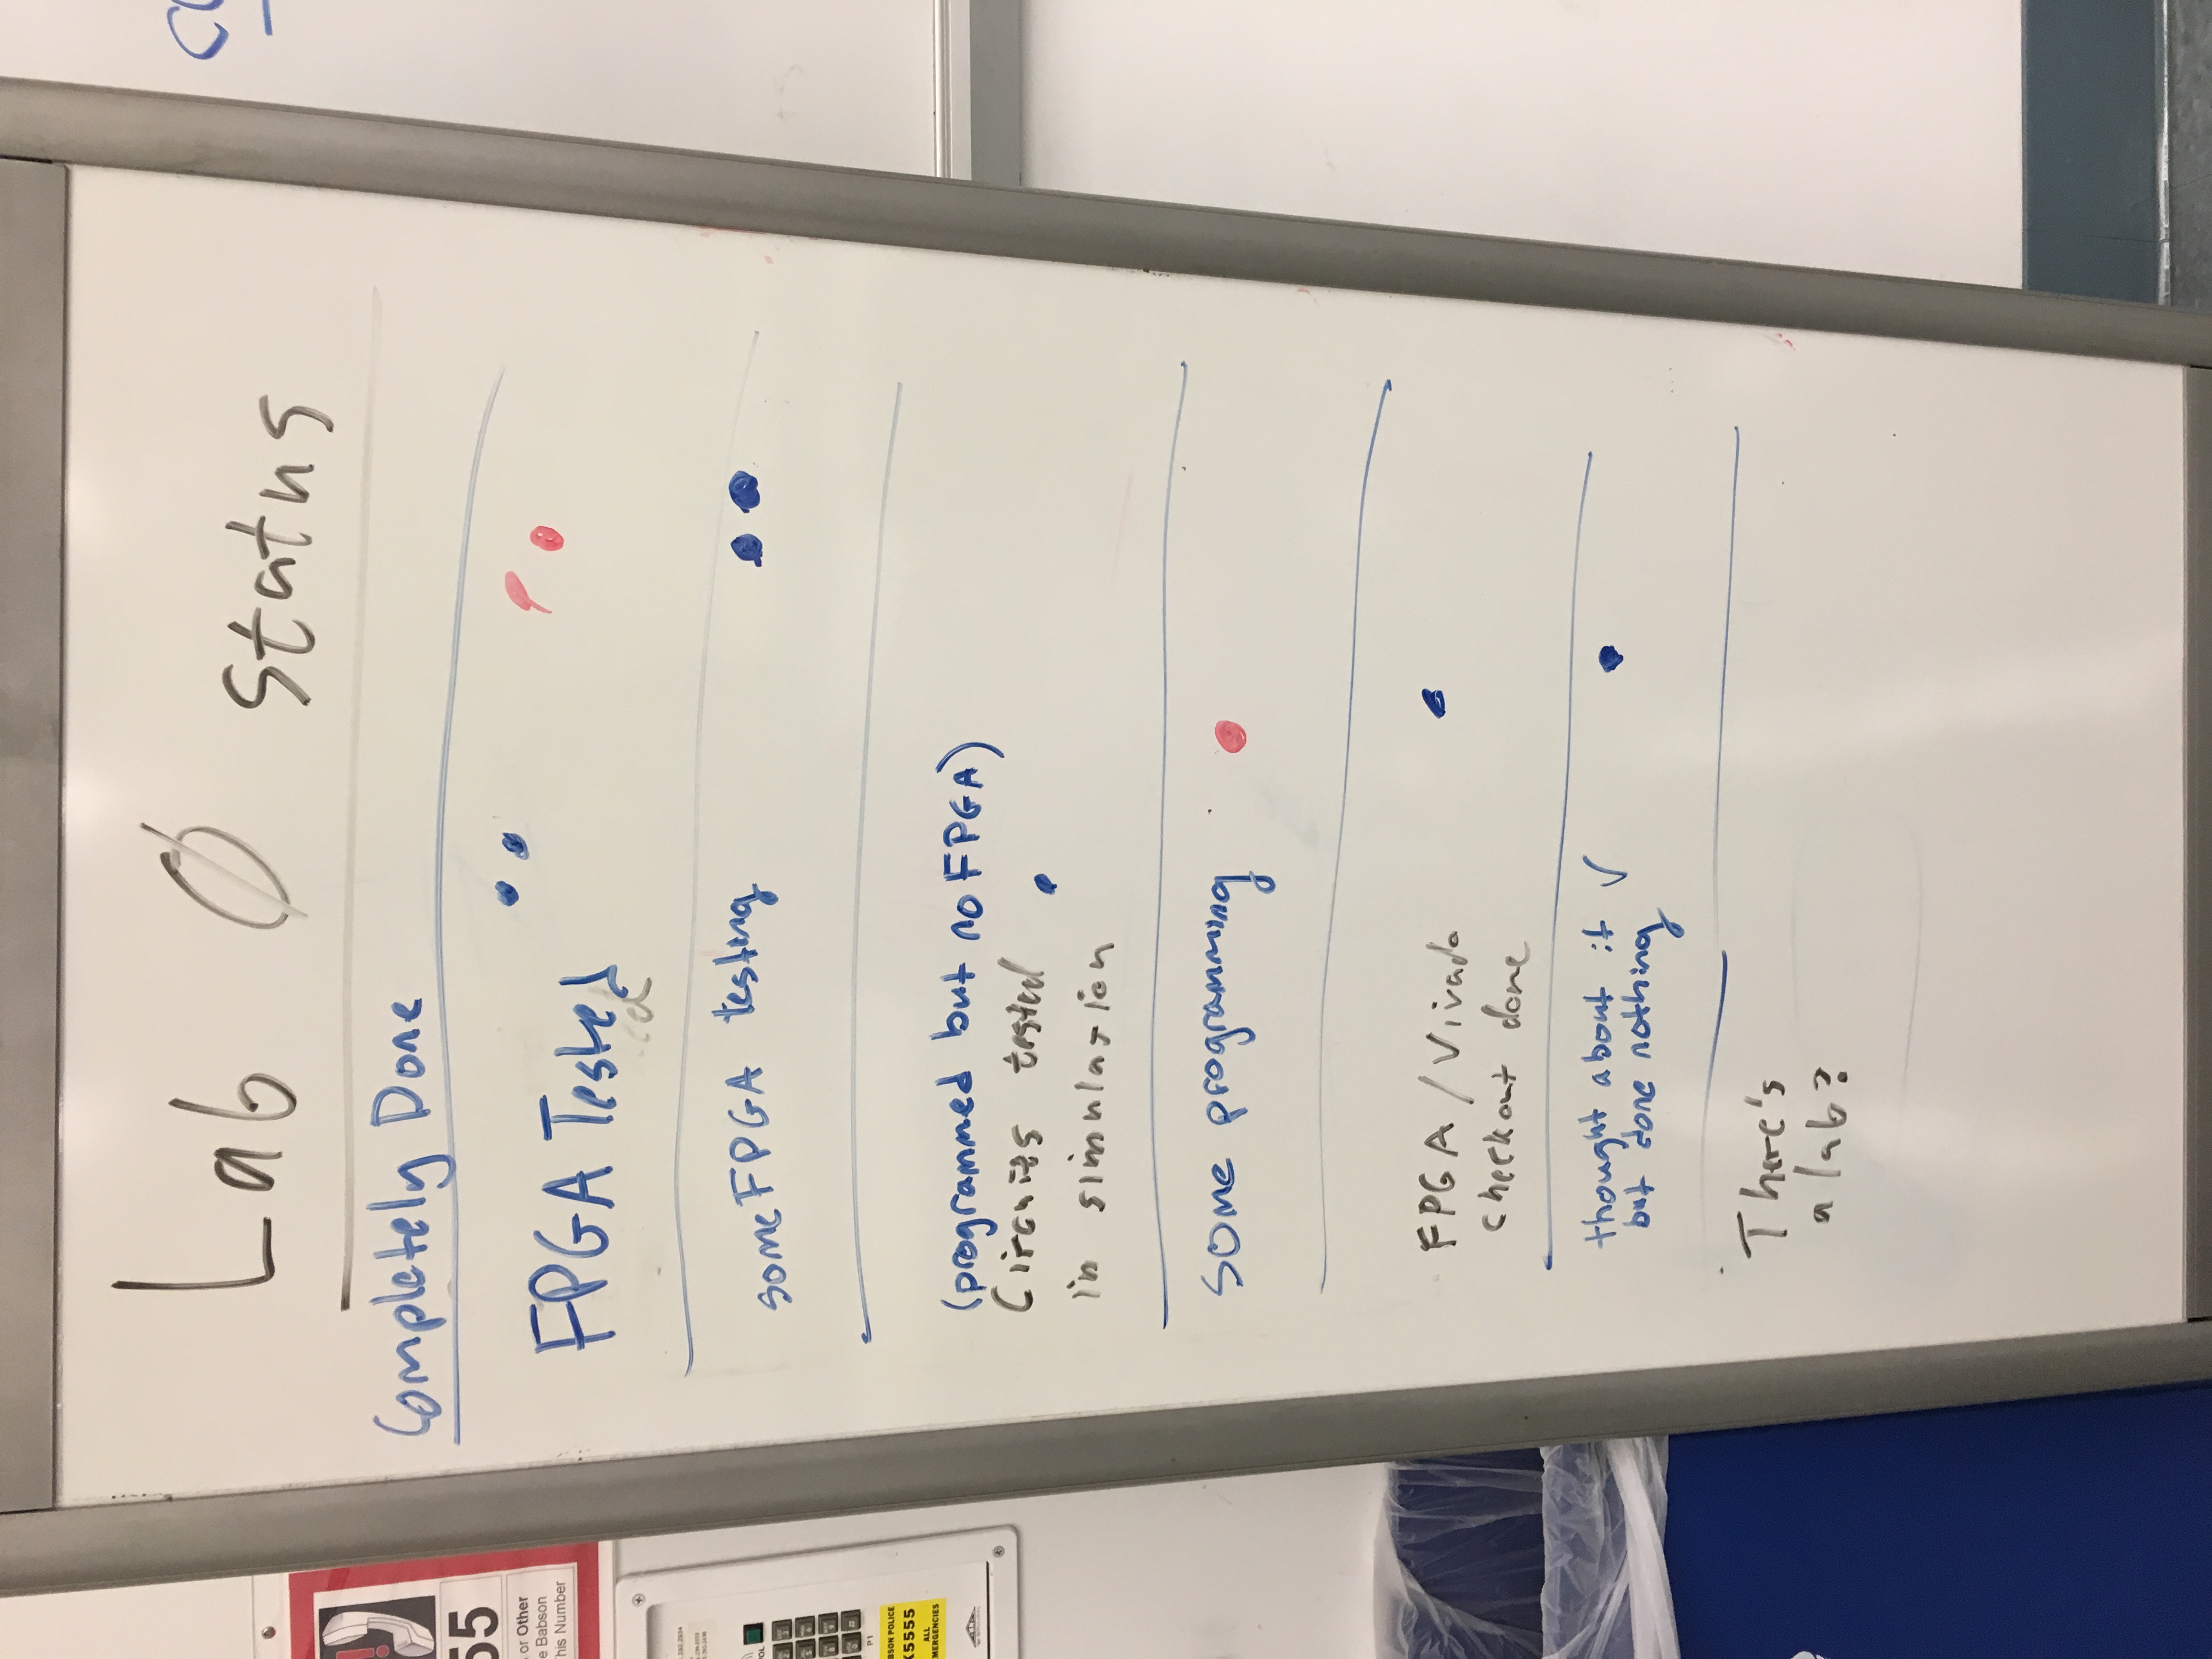 Lab Ø Status
Completely Done
FPGA Tested
ed
some FPGA testing
(programmed but no FPGA)
Circuits tested
in simulation
some programming
FPGA / Vivado
checkout done
thought about it ✓
but done nothing
There's
a lab?
55
or Other
e Babson
This Number
VOL
P1
BSON POLICE
X5555
ALL
EMERGENCIES